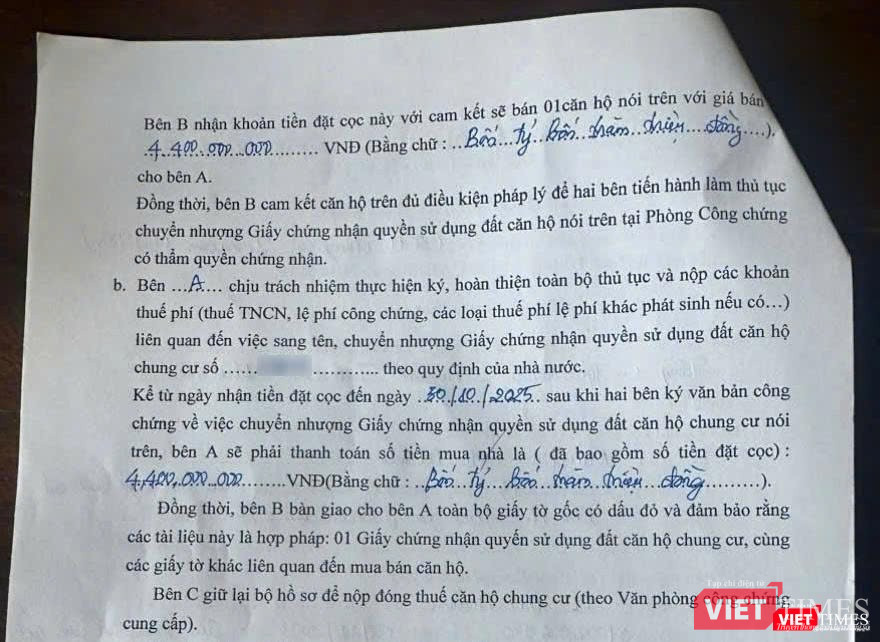 Bên B nhận khoản tiền đặt cọc này với cam kết sẽ bán 01căn hộ nói trên với giá bán
4.400.000.000......... VNĐ (Bằng chữ : ..Bốn...tỷ..bốn..trăm..triệu....đồng....).
cho bên A.
Đồng thời, bên B cam kết căn hộ trên đủ điều kiện pháp lý để hai bên tiến hành làm thủ tục
chuyển nhượng Giấy chứng nhận quyền sử dụng đất căn hộ nói trên tại Phòng Công chứng
có thẩm quyền chứng nhận.
b. Bên ...A.... chịu trách nhiệm thực hiện ký, hoàn thiện toàn bộ thủ tục và nộp các khoản
thuế phí (thuế TNCN, lệ phí công chứng, các loại thuế phí lệ phí khác phát sinh nếu có…)
liên quan đến việc sang tên, chuyển nhượng Giấy chứng nhận quyền sử dụng đất căn hộ
chung cư số ...... .............. theo quy định của nhà nước.
Kể từ ngày nhận tiền đặt cọc đến ngày ..30./10./2025.. sau khi hai bên ký văn bản công
chứng về việc chuyển nhượng Giấy chứng nhận quyền sử dụng đất căn hộ chung cư nói
trên, bên A sẽ phải thanh toán số tiền mua nhà là ( đã bao gồm số tiền đặt cọc) :
4,400,000,000.......VNĐ(Bằng chữ : ..Bốn..tỷ...bốn...trăm...triệu...đồng.........).
Đồng thời, bên B bàn giao cho bên A toàn bộ giấy tờ gốc có dấu đỏ và đảm bảo rằng
các tài liệu này là hợp pháp: 01 Giấy chứng nhận quyền sử dụng đất căn hộ chung cư, cùng
các giấy tờ khác liên quan đến mua bán căn hộ.
Bên C giữ lại bộ hồ sơ để nộp đóng thuế căn hộ chung cư (theo Văn phòng công chứng
cung cấp).
Tạp chí điện tử
VIETTIMES
VIETTIMES